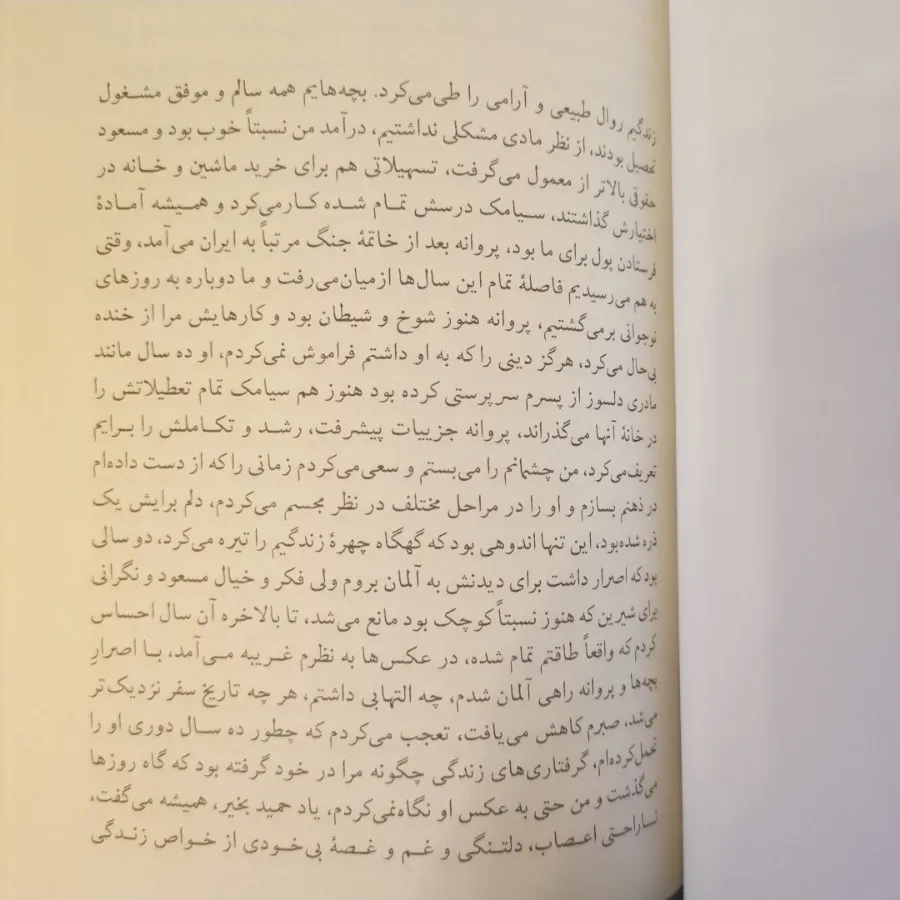 زندگیم روال طبیعی و آرامی را طی می‌کرد. بچه‌هایم همه سالم و موفق مشغول
تحصیل بودند، از نظر مادی مشکلی نداشتیم، درآمد من نسبتاً خوب بود و مسعود
حقوقی بالاتر از معمول می‌گرفت، تسهیلاتی هم برای خرید ماشین و خانه در
اختیارش گذاشتند، سیامک درسش تمام شده کار می‌کرد و همیشه آمادهٔ
فرستادن پول برای ما بود، پروانه بعد از خاتمهٔ جنگ مرتباً به ایران می‌آمد، وقتی
به هم می‌رسیدیم فاصلهٔ تمام این سال‌ها ازمیان‌می‌رفت و ما دوباره به روزهای
نوجوانی برمی‌گشتیم، پروانه هنوز شوخ و شیطان بود و کارهایش مرا از خنده
بی‌حال می‌کرد، هرگز دینی را که به او داشتم فراموش نمی‌کردم، او ده سال مانند
مادری دلسوز از پسرم سرپرستی کرده بود هنوز هم سیامک تمام تعطیلاتش را
در خانهٔ آنها می‌گذراند، پروانه جزییات پیشرفت، رشد و تکاملش را برایم
تعریف‌می‌کرد، من چشمانم را می‌بستم و سعی‌می‌کردم زمانی را که از دست داده‌ام
در ذهنم بسازم و او را در مراحل مختلف در نظر مجسم می‌کردم، دلم برایش یک
ذره شده‌بود، این تنها اندوهی بود که گهگاه چهرهٔ زندگیم را تیره می‌کرد، دو سالی
بود که اصرار داشت برای دیدنش به آلمان بروم ولی فکر و خیال مسعود و نگرانی
برای شیرین که هنوز نسبتاً کوچک بود مانع می‌شد، تا بالاخره آن سال احساس
کردم که واقعاً طاقتم تمام شده، در عکس‌ها به نظرم غریبه می‌آمد، با اصرارِ
بچه‌ها و پروانه راهی آلمان شدم، چه التهابی داشتم، هر چه تاریخ سفر نزدیک‌تر
می‌شد، صبرم کاهش می‌یافت، تعجب می‌کردم که چطور ده سال دوری او را
تحمل‌کرده‌ام، گرفتاری‌های زندگی چگونه مرا در خود گرفته بود که گاه روزها
می‌گذشت و من حتی به عکس او نگاه‌نمی‌کردم، یاد حمید بخیر، همیشه می‌گفت،
ناراحتی اعصاب، دلتنگی و غم و غصهٔ بی‌خودی از خواص زندگی